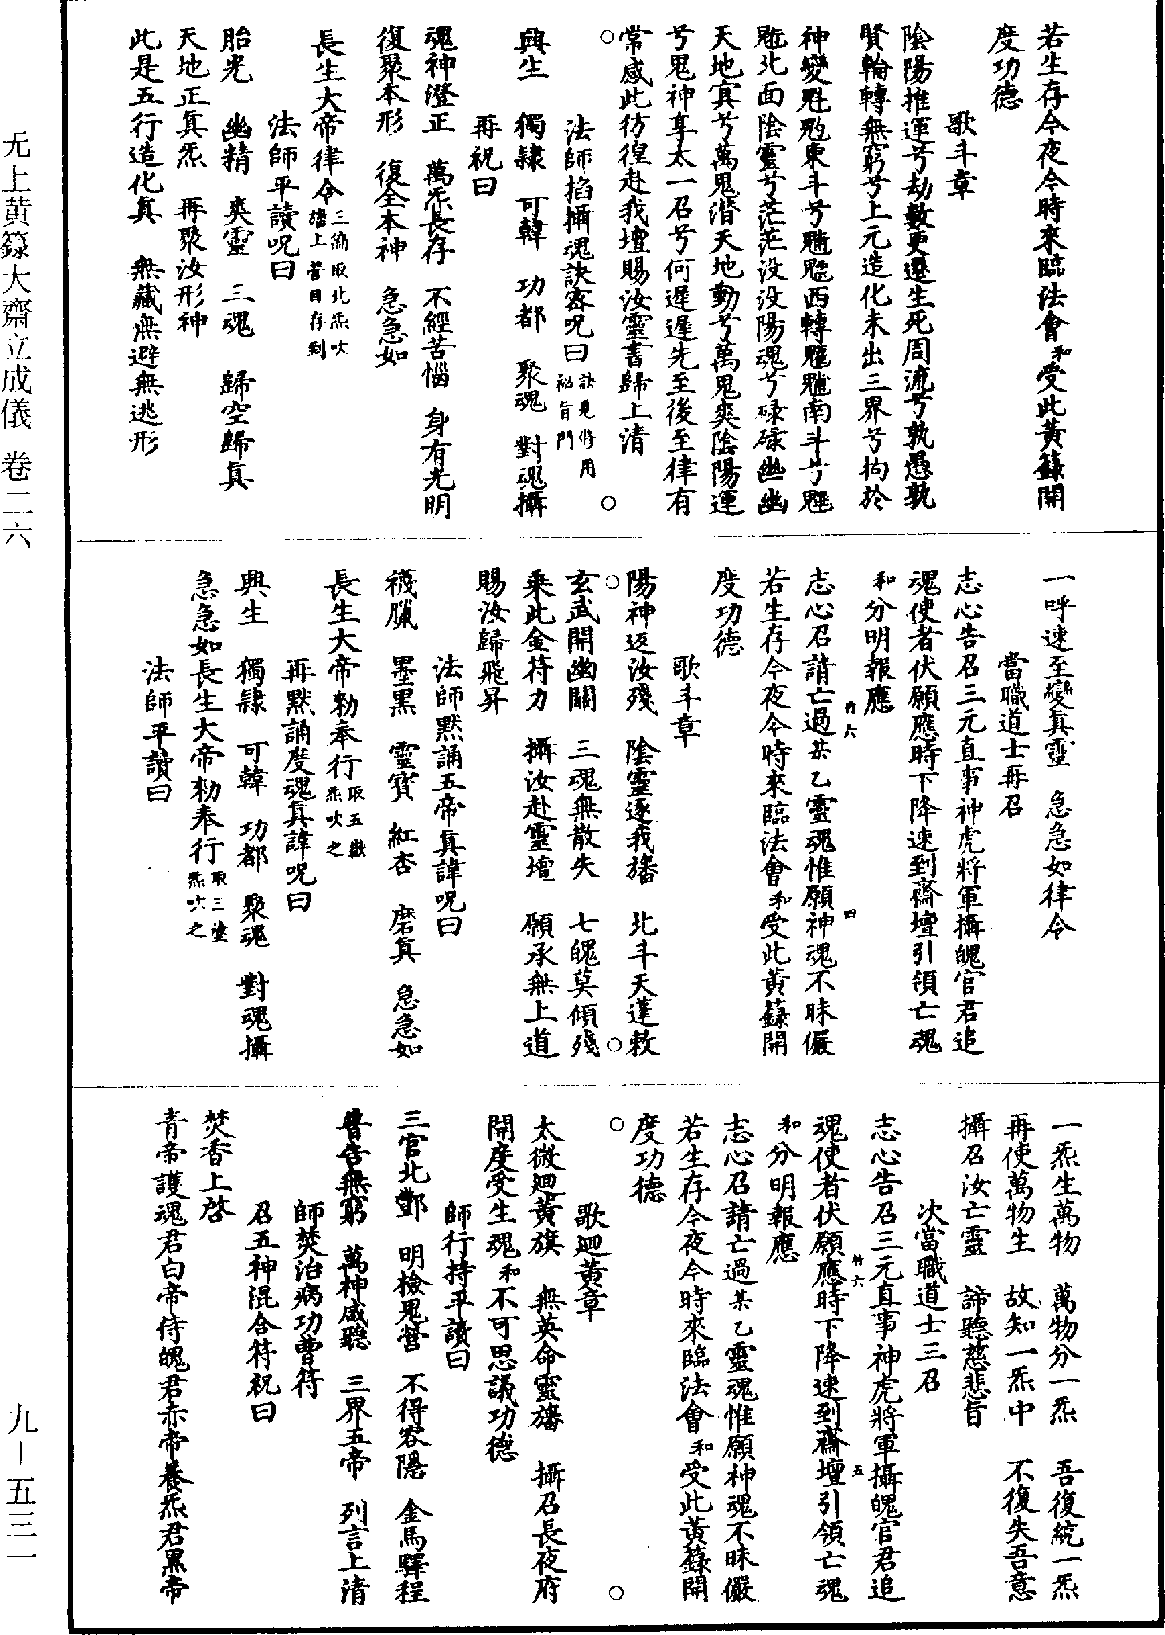 若生存今夜今時來臨法會和受此黃籙開
度功德
歌斗章
陰陽推運兮劫數更遷生死周流兮孰愚孰
賢輪轉無窮兮上元造化未出三界兮拘於
神變魁𩲃東斗兮䰢魓西轉魒魋南斗兮魕
北面陰靈兮茫茫没没陽魂兮碌碌幽幽
天地㝠兮萬鬼潛天地動兮萬鬼爽陰陽運
兮鬼神享太一召兮何遲遲先至後至律有
常感此彷徨赴我壇賜汝靈書歸上清
法師掐攝魂訣密呪曰訣見修用祕旨門
興生 獨隸 可韓 功都 聚魂 對魂攝
再祝曰
魂神澄正 萬炁長存 不經苦惱 身有光明
復聚本形 復全本神 急急如
長生大帝律令三涌取北炁吹旛上菩目存到
法師平讀呪曰
胎光 幽精 爽靈 三魂 歸空歸真
天地正真炁 再聚汝形神
此是五行造化真 無藏無避無逃形
一呼速至變真靈 急急如律令
當職道士再召
志心告召三元直事神虎將軍攝魄官君追
魂使者伏願應時下降速到齋壇引領亡魂
和分明報應
志心召請亡過某乙靈魂惟願神魂不昧儼
若生存今夜今時來臨法會和受此黃籙開
度功德
歌斗章
陽神返汝殘 陰靈逐我旛 北斗天蓬敕
玄武開幽關 三魂無散失 七魄莫傾殘
乘此金符力 攝汝赴靈壇 願承無上道
賜汝歸飛昇
法師默誦五帝真諱呪曰
襪臘 墨黑 靈寶 紅杏 磨真 急急如
長生大帝勑奉行取五獄炁吹之
再默誦度魂真諱呪曰
興生 獨隸 可韓 功都 聚魂 對魂攝
急急如長生大帝勑奉行取三塗炁吹之
法師平讀曰
一炁生萬物 萬物分一炁 吾復統一炁
再使萬物生 故知一炁中 不復失吾意
攝召汝亡靈 諦聽慈悲旨
次當職道士三召
志心告召三元直事神虎將軍攝魄官君追
魂使者伏願應時下降速到齋壇引領亡魂
和分明報應
志心召請亡過某乙靈魂惟願神魂不昧儼
若生存今夜今時來臨法會和受此黃籙開
度功德
歌迴黃章
太微迴黃旗 無英命靈旛 攝召長夜府
開度受生魂和不可思議功德
師行持平讀曰
三官北酆 明檢鬼營 不得容隱 金馬驛程
普告無窮 萬神咸聽 三界五帝 列言上清
師焚治病功曹符
召五神混合符祝曰
焚香上啓
青帝護魂君白帝侍魄君赤帝養炁君黑帝
无上黄籙大齋立成儀 卷二六
九—五三一